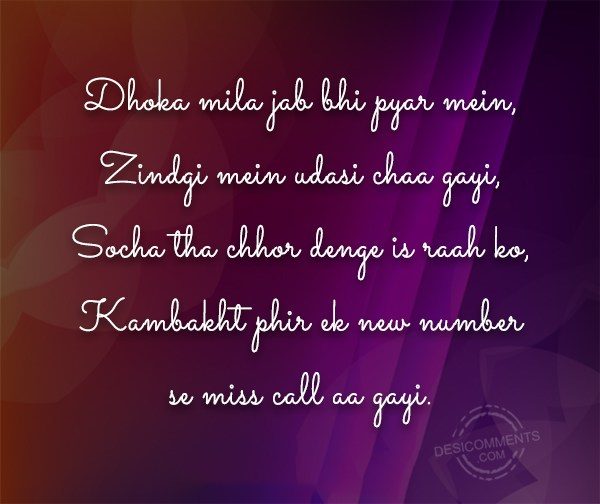 Dhoka mila jab bhi pyar mein,
Zindgi mein udasi chaa gayi,
Socha tha chhor denge is raah ko,
Kambakht phir ek new number
se miss call aa gayi.
DESICOMMENTS
.COM